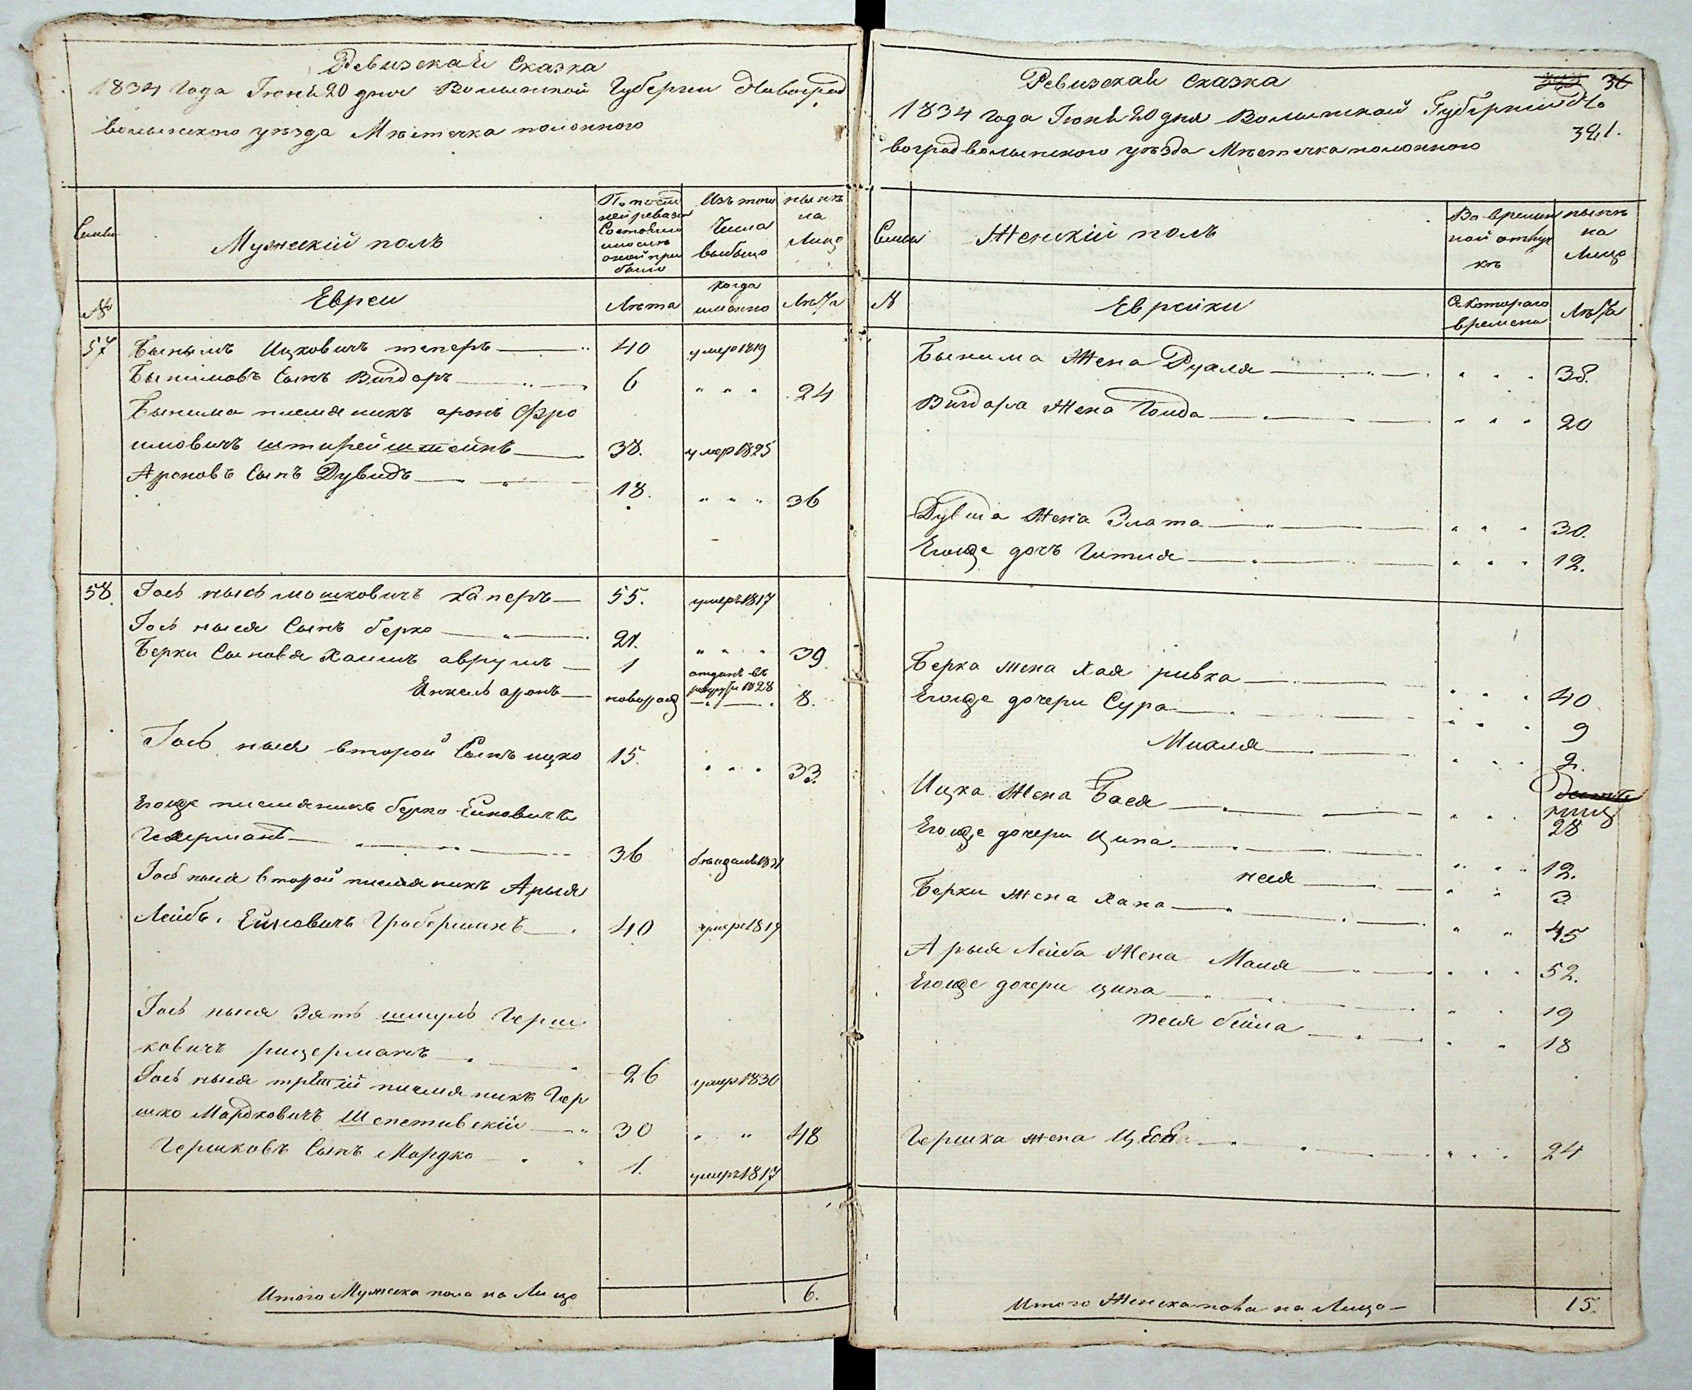 Ревизская Сказка
1834 Года Іюня 20 дня Волынской Губернии Новоград
волынского уезда Местечка полонного
Семьи
Мужский полъ
По послед
ней ревизіи
Состояло
и после
оной при
было
Изъ того
Числа
выбыло
ныне
на
Лицо
№
Евреи
Лета
когда
именно
Лета
57
Бынымъ Ицковичъ 40 умер 1819
Бынимовъ Сынъ Вигдоръ 6 " " " 24
Бынима племяникъ аронъ Фро
имовичъ 38. умер 1825
Ароновъ Сынъ Дувидъ 18. " " " 36
58.
Іось мошковичъ 55. умеръ 1817
Іось Сынъ берко 21. " " " 39
Берки Сыновья Хаимъ аврумъ 1 отданъ въ
рекруты 1828
Янкель аронъ новорож 8.
Іось второй Сынъ ицко 15. " " " 33.
Егожъ племяникъ берко
36
Іось второй племяникъ Арыя
Лейбъ Гроберманъ 40 умеръ 1819
Іось Зять шмуль Герш
ковичъ 26 умер 1830
Іось третій племяникъ Гер
шко Мордковичъ Шепетивскій 30 " " 48
Гершковъ Сынъ Мордко 1. умеръ 1817
Итого Мужеска пола на Лицо 6.
Ревизская Сказка
36
1834 года Іюня 20 дня Волынской Губерніи Но
391.
воградволынского уезда Местечка полонного
Семьи
Женскій полъ
Во времен
ной отлуч
ке
ныне
на
Лицо
№
Еврейки
Скотораго
времени
Лета
Бынима Жена Рухля " " " 38.
Вигдора Жена Голда " " " 20
Дувида Жена Злата " " " 30.
Егоже дочъ Гитля " " " 12.
Берка жена Хая ривка " " " 40
Егоже дочери Сура " " " 9
Михля " " " 2.
Ицка Жена Бася " " " 28
Егоже дочери Ципа " " " 12.
неся " " 3
Берки Жена Хана " " 45
Арыя Лейба Жена Маля " " " 52.
Егоже дочери ципа " " 19
песя бейла " " 18
Гершка жена " " " 24
Итого Женска пола на Лицо 15.